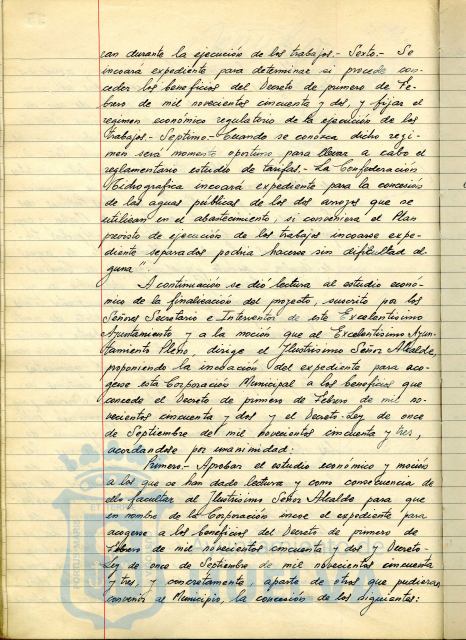 can durante la ejecución de los trabajos.- Sexto.- Se
incoará expediente para determinar si procede con-
ceder los beneficios del Decreto de primero de Fe-
brero de mil novecientos cincuenta y dos, y fijar el
regimen económico regulatorio de la ejecución de los
trabajos.- Septimo.- Cuando se conozca dicho regi-
men será momento oportuno para llevar a cabo el
reglamentario estudio de tarifas.- La Confederación
Hidrografica incoará expediente para la concesión
de las aguas públicas de los dos arroyos que se
utilizan en el abastecimiento, si conviniera el Plan
previsto de ejecución de los trabajos incoarse expe-
diente separados podria hacerse sin dificultad al-
guna".
A continuación se dió lectura al estudio econó-
mico de la finalización del proyecto, suscrito por los
Señores Secretario e Interventor de este Excelentisimo
Ayuntamiento y a la moción que al Excelentisimo Ayun-
tamiento Pleno, dirige el Ilustrisimo Señor Alcalde,
proponiendo la incoación del expediente para aco-
gerse esta Corporación Municipal a los beneficios que
concede el Decreto de primero de Febrero de mil no-
vecientos cincuenta y dos y el Decreto-Ley de once
de Septiembre de mil novecientos cincuenta y tres,
acordandose por unanimidad:
Primero.- Aprobar el estudio económico y moción
a los que se han dado lectura y como consecuencia de
ello facultar al Ilustrisimo Señor Alcalde para que
en nombre de la Corporación incoe el expediente para
acogerse a los beneficios del Decreto de primero de
Febrero de mil novecientos cincuenta y dos y Decreto-
Ley de once de Septiembre de mil novecientos cincuenta
y tres, y concretamente aparte de otros que pudieran
convenir al Municipio, la concesión de los siguientes: